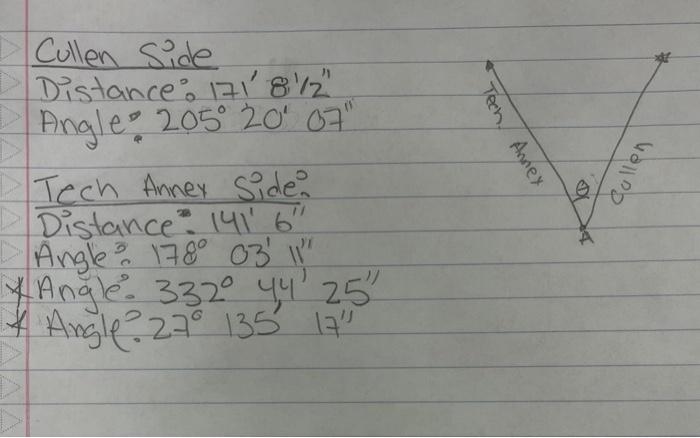 Cullen Side
Distance: 171' 8 1/2"
Angle: 205° 20' 07"
Tech Annex Side:
Distance: 141' 6"
Angle: 178° 03' 11"
* Angle: 332° 44' 25"
* Angle: 27° 135' 17"
Tech. Annex
Cullen
θ
A